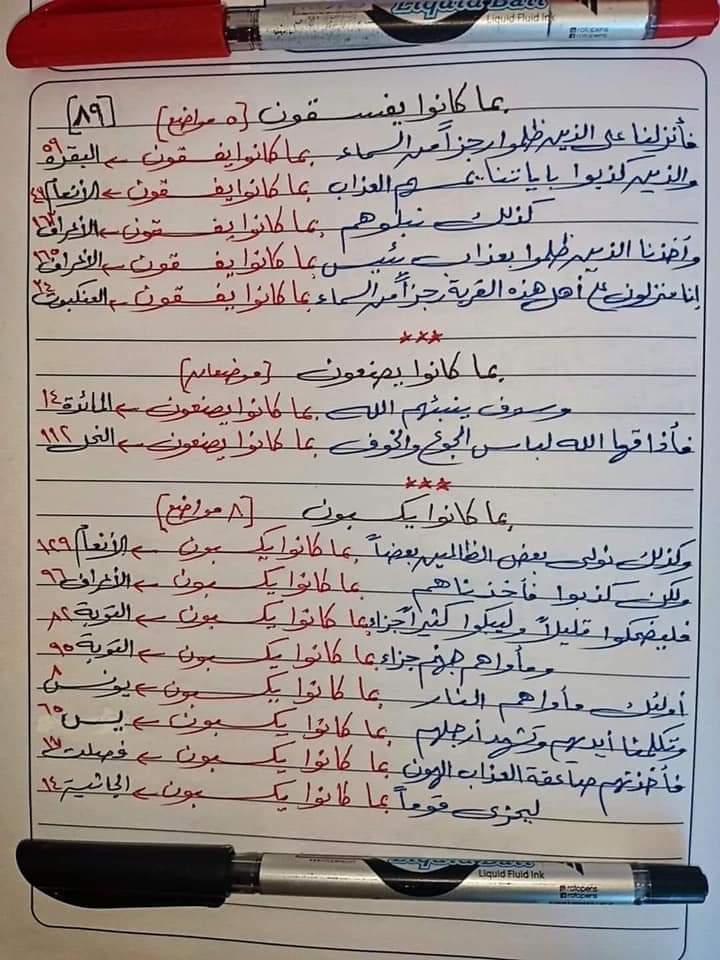 Liquid Ball
Liquid Fluid Ink
rotopens
بما كانوا يفسقون [٥ مواضع] [٨٩]
فأنزلنا على الذين ظلموا رجزاً من السماء بما كانوا يفسقون ← البقرة ٥٩
والذين كذبوا بآياتنا يمسهم العذاب بما كانوا يفسقون ← الأنعام ٤٩
كذلك نبلوهم بما كانوا يفسقون ← الأعراف ١٦٣
وأخذنا الذين ظلموا بعذاب بئيس بما كانوا يفسقون ← الأعراف ١٦٥
إنا منزلون على أهل هذه القرية رجزاً من السماء بما كانوا يفسقون ← العنكبوت ٣٤
***
بما كانوا يصنعون [موضعان]
وسوف ينبئهم الله بما كانوا يصنعون ← المائدة ١٤
فأذاقها الله لباس الجوع والخوف بما كانوا يصنعون ← النحل ١١٢
***
بما كانوا يكسبون [٨ مواضع]
وكذلك نولى بعض الظالمين بعضاً بما كانوا يكسبون ← الأنعام ١٢٩
ولكن كذبوا فأخذناهم بما كانوا يكسبون ← الأعراف ٩٦
فليضحكوا قليلاً وليبكوا كثيراً جزاء بما كانوا يكسبون ← التوبة ٨٢
ومأواهم جهنم جزاء بما كانوا يكسبون ← التوبة ٩٥
أولئك مأواهم النار بما كانوا يكسبون ← يونس ٨
وتكلمنا أيديهم وتشهد أرجلهم بما كانوا يكسبون ← يس ٦٥
فأخذتهم صاعقة العذاب الهون بما كانوا يكسبون ← فصلت ١٧
ليجزى قوماً بما كانوا يكسبون ← الجاثية ١٤
Liquid Ball
Liquid Fluid Ink
rotopens
rotopens